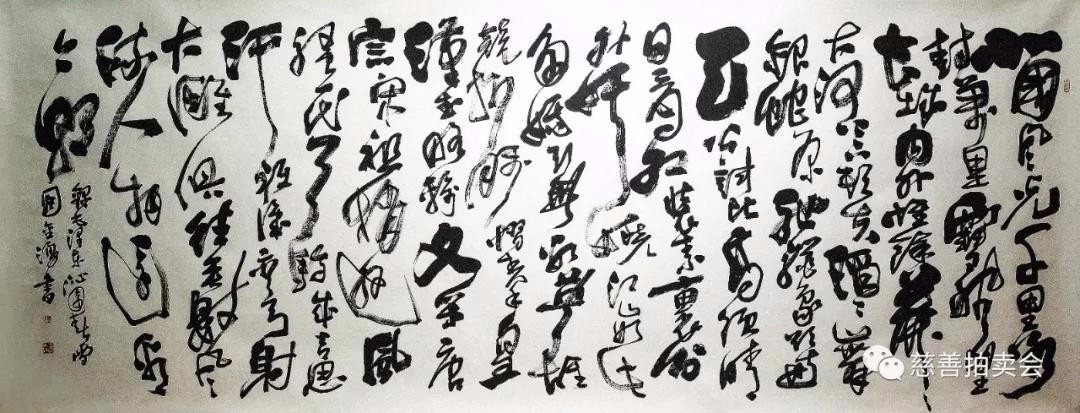 北国风光千里冰
封万里雪飘望
长城内外惟余莽莽
大河上下顿失滔滔山舞
银蛇原驰蜡象欲与
天公试比高须晴
日看红装素裹分
外妖娆江山如此
多娇引无数英雄
竞折腰惜秦皇
汉武略输文采唐
宗宋祖稍逊风
骚一代天骄成吉思
汗只识弯弓射
大雕俱往矣数风
流人物还看
今朝
録毛泽东沁园春雪
书
慈善拍卖会